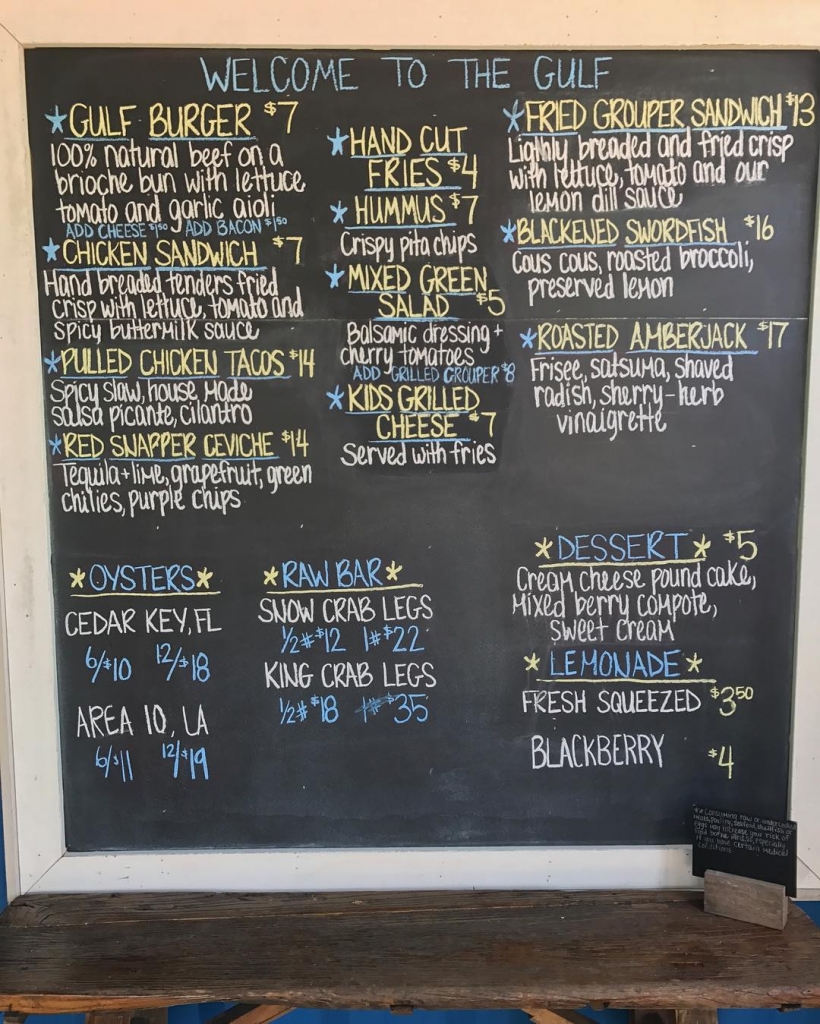 WELCOME TO THE GULF
GULF BURGER $7
100% natural beef on a
brioche bun with lettuce
tomato and garlic aioli
ADD CHEESE $1.50 ADD BACON $1.50
CHICKEN SANDWICH $7
Hand breaded tenders fried
crisp with lettuce, tomato and
spicy buttermilk sauce
PULLED CHICKEN TACOS $14
Spicy slaw, house made
salsa picante, cilantro
RED SNAPPER CEVICHE $14
Tequila+lime, grapefruit, green
chilies, purple chips
HAND CUT
FRIES $4
HUMMUS $7
Crispy pita chips
MIXED GREEN
SALAD $5
Balsamic dressing +
cherry tomatoes
ADD GRILLED GROUPER $8
KIDS GRILLED
CHEESE $7
Served with fries
FRIED GROUPER SANDWICH $13
Lighlly breaded and fried crisp
with lettuce, tomato and our
lemon dill sauce
BLACKENED SWORDFISH $16
Cous cous, roasted broccoli,
preserved lemon
ROASTED AMBERJACK $17
Frisee, satsuma, shaved
radish, sherry-herb
vinaigrette
OYSTERS
CEDAR KEY, FL
6/$10 12/$18
AREA 10, LA
6/$11 12/$19
RAW BAR
SNOW CRAB LEGS
1/2# $12 1# $22
KING CRAB LEGS
1/2# $18 1# $35
DESSERT $5
Cream cheese pound cake,
Mixed berry compote,
sweet cream
LEMONADE
FRESH SQUEEZED $3.50
BLACKBERRY $4
Consuming raw or undercooked
meats, poultry, seafood, shellfish, or
eggs may increase your risk of
food borne illness, especially
if you have certain medical
conditions